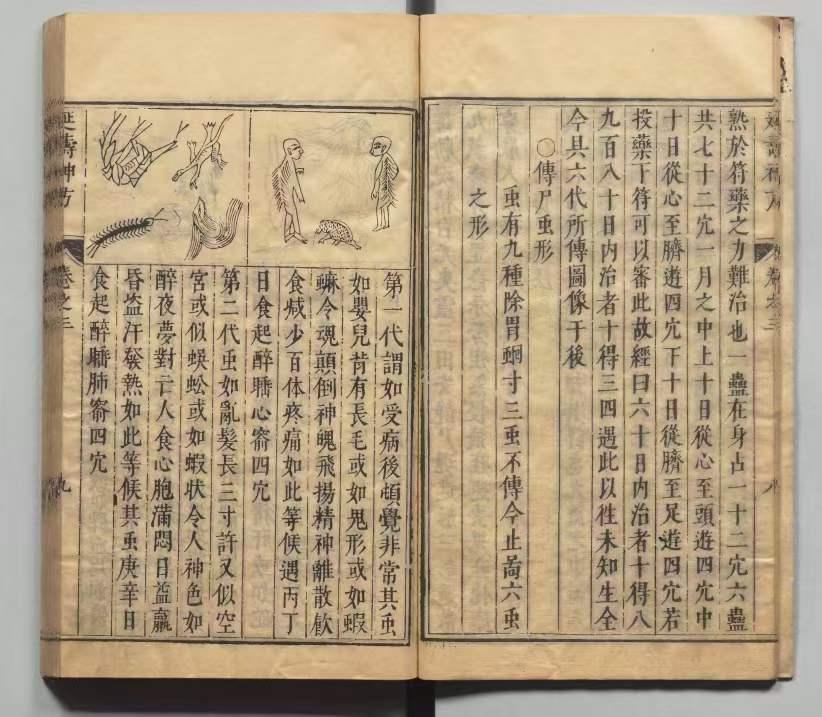 熟於符藥之力難治也一蠱在身占一十二宂六蠱
共七十二宂一月之中上十日從心至頭遊四宂中
十日從心至臍遊四宂下十日從臍至足遊四宂若
投藥下符可以審此故經曰六十日內治者十得八
九百八十日內治者十得三四過此以徃未知生全
今具六代所傳圖像于後
○傳尸虫形
虫有九種除胃蛔寸三虫不傳今止啇六虫
之形
卷之三
延壽神方
卷之三
九
第一代謂如受病後頓覺非常其虫
如嬰兒背有長毛或如鬼形或如蝦
蟆令魂顛倒神魄飛揚精神離散飲
食减少百体疼痛如此等候遇丙丁
日食起醉睡心窬四宂
第二代虫如亂髮長三寸許又似空
宮或似蜈蚣或如蝦状令人神色如
醉夜夢對亡人食心胞滿悶日益羸
昏盗汗發熱如此等候其虫庚辛日
食起醉睡肺窬四宂